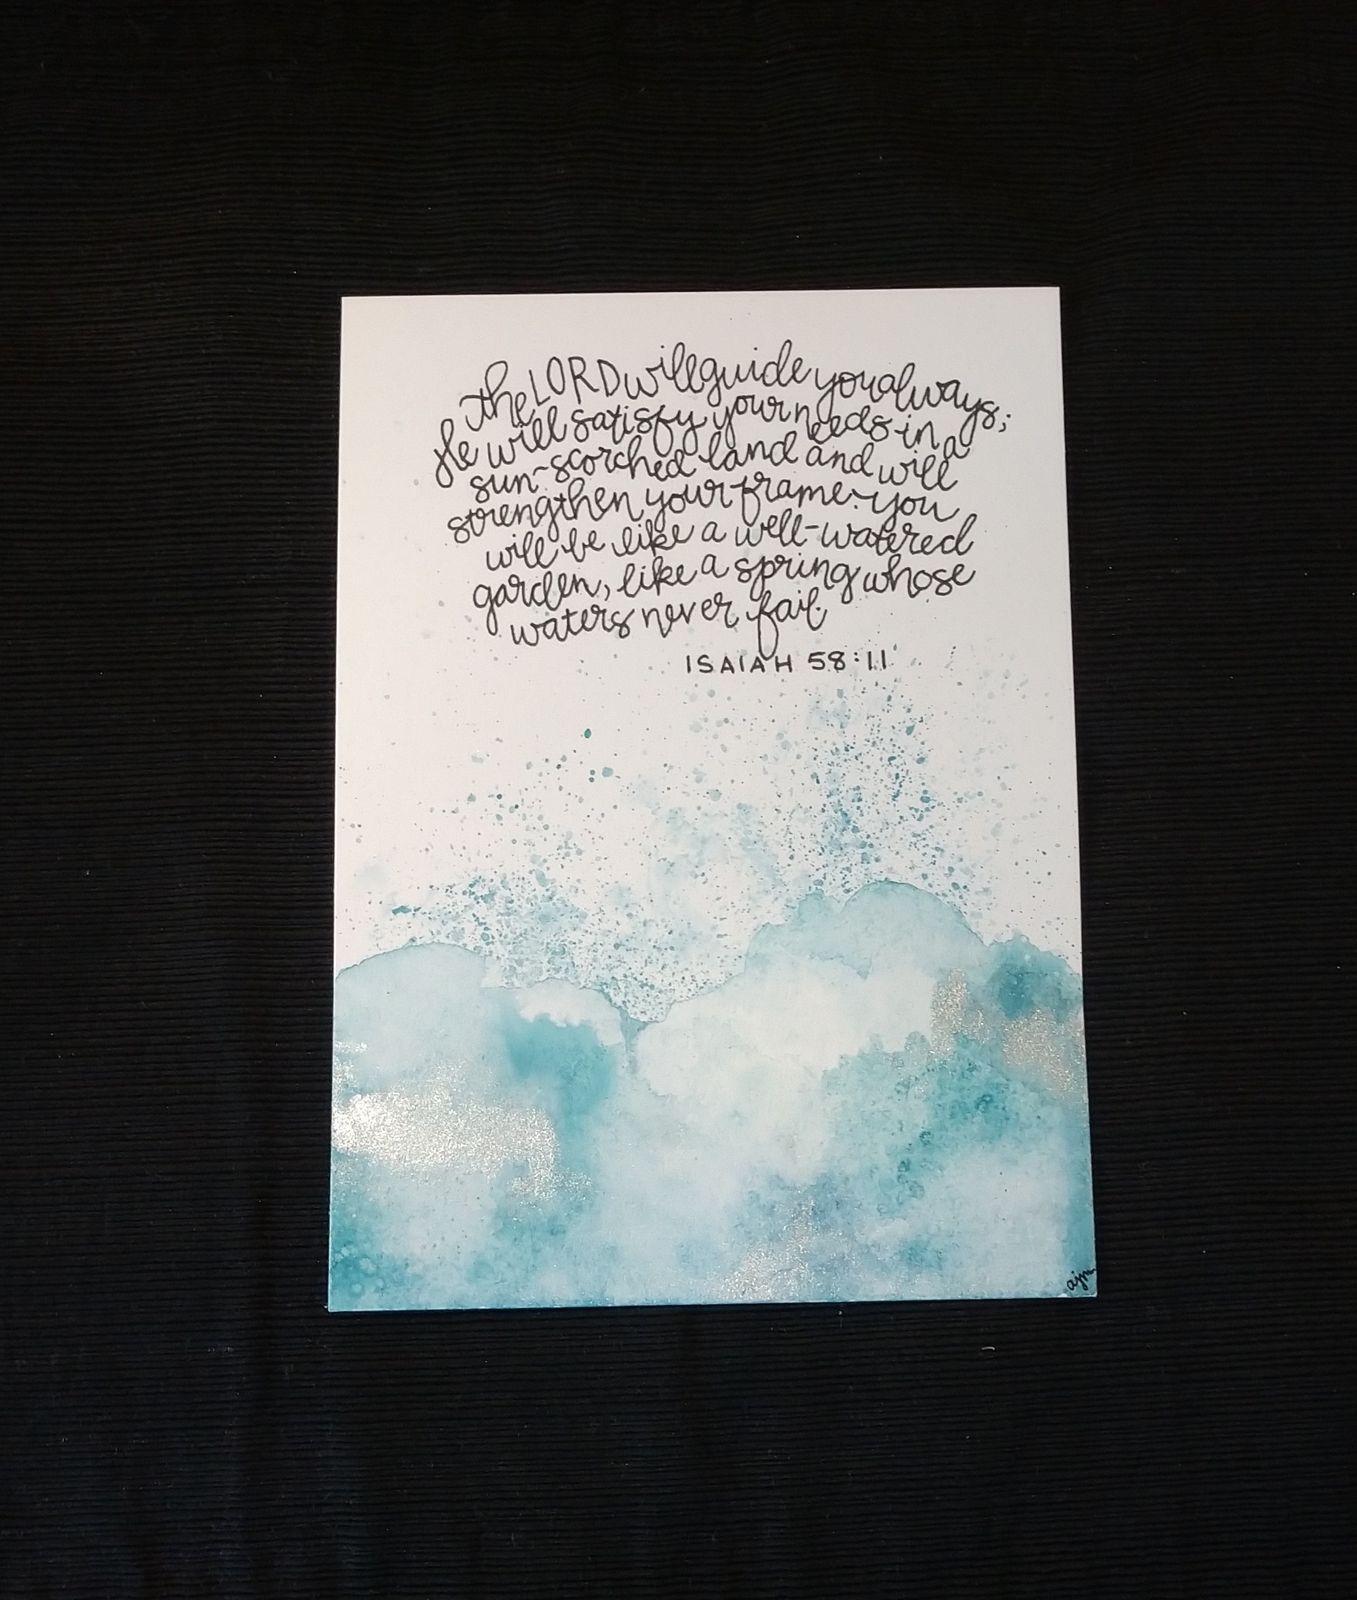 the LORD will guide you always;
He will satisfy your needs in a
sun-scorched land and will
strengthen your frame. You
will be like a well-watered
garden, like a spring whose
waters never fail.
ISAIAH 58:11
ajm